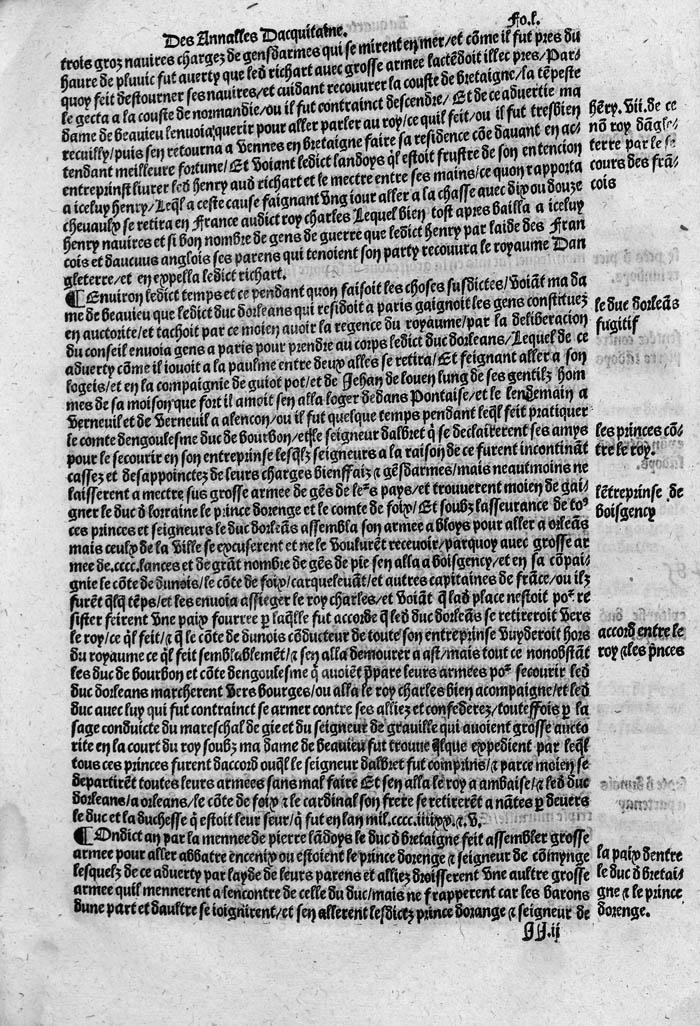 Des Annalles Dacquitaine.
Fo.l.
trois groz nauires chargez de gensdarmes qui se mirent en mer/et cōme il fut pres du
haure de pluuic fut auerty que led richart auec grosse armee lactēdoit illec pres/Par-
quoy feit destourner ses nauires/et cuidant recouurer la couste de bretaigne/la tēpeste
le gecta a la couste de normandie/ou il fut contrainct descendre/ Et de ce aduertie ma
dame de beauieu lenuoia querir pour aller parler au roy/ce quil feit/ou il fut tresbien
recuilly/puis sen retourna a Vennes en bretaigne faire sa residence cōe dauant en ac-
tendant meilleure fortune/Et Voiant ledict landoys ql estoit frustre de son entencion
entreprinst liurer led henry aud richart et le mectre entre ses mains/ce quon rapporta
a iceluy henry/Leql a ceste cause faignant Vng iour aller a la chasse auec dix ou douze
cheuaulx se retira en France audict roy charles Lequel bien tost apres bailla a iceluy
henry nauires et si bon nombre de gens de guerre que ledict henry par laide des Fran
cois et daucuns anglois ses parens qui tenoient son party recouura le royaume Dan
gleterre/et en expella ledict richart.
hēry. vii. de ce
nō roy dāgle-
terre par le se
cours des frā-
cois
¶ Enuiron ledict temps et ce pendant quon faisoit les choses susdictes/Voiāt ma da
me de beauieu que ledict duc dorleans qui residoit a paris gaignoit les gens constituez
en auctorite/et tachoit par ce moien auoir la regence du royaume/par la deliberacion
du conseil enuoia gens a paris pour prendre au corps ledict duc dorleans/Lequel de ce
aduerty cōme il iouoit a la paulme entre deux alles se retira/Et feignant aller a son
logeis/et en la compaignie de guiot pot/et de Jehan de louen lung de ses gentilz hom
mes de sa moison que fort il amoit sen alla loger dedans Pontaise/et le lendemain a
Verneuil et de Verneuil a alencon/ou il fut quelque temps pendant leql feit pratiquer
le comte dengoulesme duc de bourbon/et le seigneur dalbret q̄ se declairerent ses amys
pour le secourir en son entreprinse lesqlz seigneurs a la raison de ce furent incontināt
cassez et desappoinctez de leurs charges bienffaiz ⁊ gēsdarmes/mais neautmoins ne
laisserent a mectre sus grosse armee de gēs de leꝛs pays/et trouuerent moien de gai-
gner le duc d lorraine le prince dorenge et le comte de foix/ Et soubz lasseurance de toꝰ
ces princes et seigneurs le duc dorleās assembla son armee a bloys pour aller a orleās
mais ceulx de la Ville se excuserent et ne le Voulurēt receuoir/parquoy auec grosse ar
mee de.cccc.lances et de grāt nombre de gēs de pie sen alla a boisgency/et en sa cōpai-
gnie le cōte de dunois/le cōte de foix/carqueleuāt/et autres capitaines de frāce/ou ilz
furēt qlq tēps/et les enuoia assieger le roy charles/et Voiāt q̄ lad place nestoit poꝛ re
sister feirent Vne paix fourree p laqlle fut accorde q̄ led duc dorleās se retireroit Vers
le roy/ce ql feit/⁊ q̄ le cōte de dunois cōducteur de toute son entreprinse Vuyderoit hors
du royaume ce ql feit semblablemēt/⁊ sen alla demourer a ast/mais tout ce nonobstāt
les duc de bourbon et cōte dengoulesme q̄ auoiēt ppare leurs armees poꝛ secourir led
duc dorleans marcherent Vers bourges/ou alla le roy charles bien acompaigne/et led
duc auec luy qui fut contrainct se armer contre ses alliez et confederez/touteffois p la
sage conduicte du mareschal de gie et du seigneur de grauille qui auoient grosse aucto
rite en la court du roy soubz ma dame de beauieu fut trouue qlque expedient par leql
tous ces princes furent daccord ouql le seigneur dalbret fut comprins/⁊ parce moien se
departirēt toutes leurs armees sans mal faire Et sen alla le roy a ambaise/⁊ led duc
dorleans/a orleans/le cōte de foix ⁊ le cardinal son frere se retirerēt a nātes p deuers
le duc et la duchesse q̄ estoit leur seur/q̄ fut en lan mil.cccc.iiiixx.⁊.v.
le duc dorleās
fugitif
les princes cō-
tre le roy.
lētreprinse de
boisgency
accord entre le
roy ⁊ les pnces
¶ Ondict an par la mennee de pierre lādoys le duc d bretaigne feit assembler grosse
armee pour aller abbatre encenix ou estoient le prince dorenge ⁊ seigneur de cōmynge
lesquelz de ce aduerty par layde de leurs parens et alliez droisserent Vne aultre grosse
armee quil mennerent a lencontre de celle du duc/mais ne frapperent car les barons
dune part et daultre se ioignirent/et sen allerent lesdictz prince dorange ⁊ seigneur de
la paix dentre
le duc d bretai-
gne ⁊ le prince
dorenge.
JJ.ii